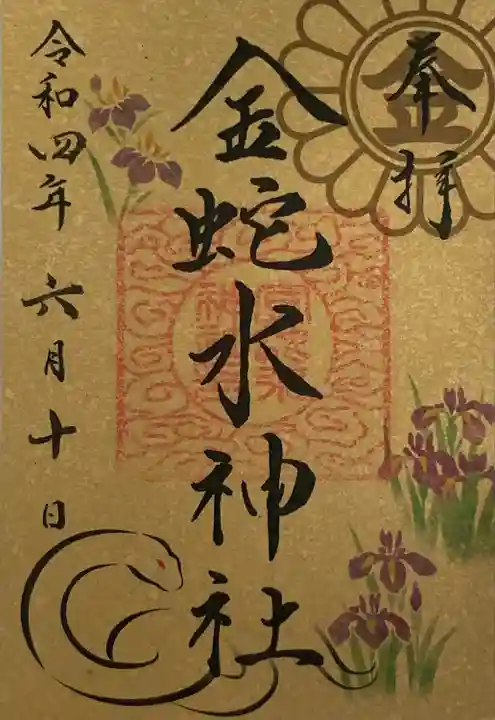 奉拝
金
金蛇水神社
令和四年 六月十日